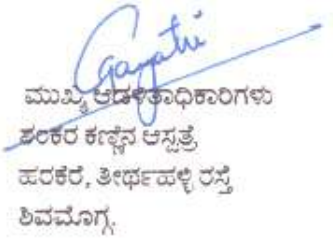 Gayatri
ಮುಖ್ಯ ಆಡಳಿತಾಧಿಕಾರಿಗಳು
ಶಂಕರ ಕಣ್ಣಿನ ಆಸ್ಪತ್ರೆ
ಹರಕೆರೆ, ತೀರ್ಥಹಳ್ಳಿ ರಸ್ತೆ
ಶಿವಮೊಗ್ಗ.